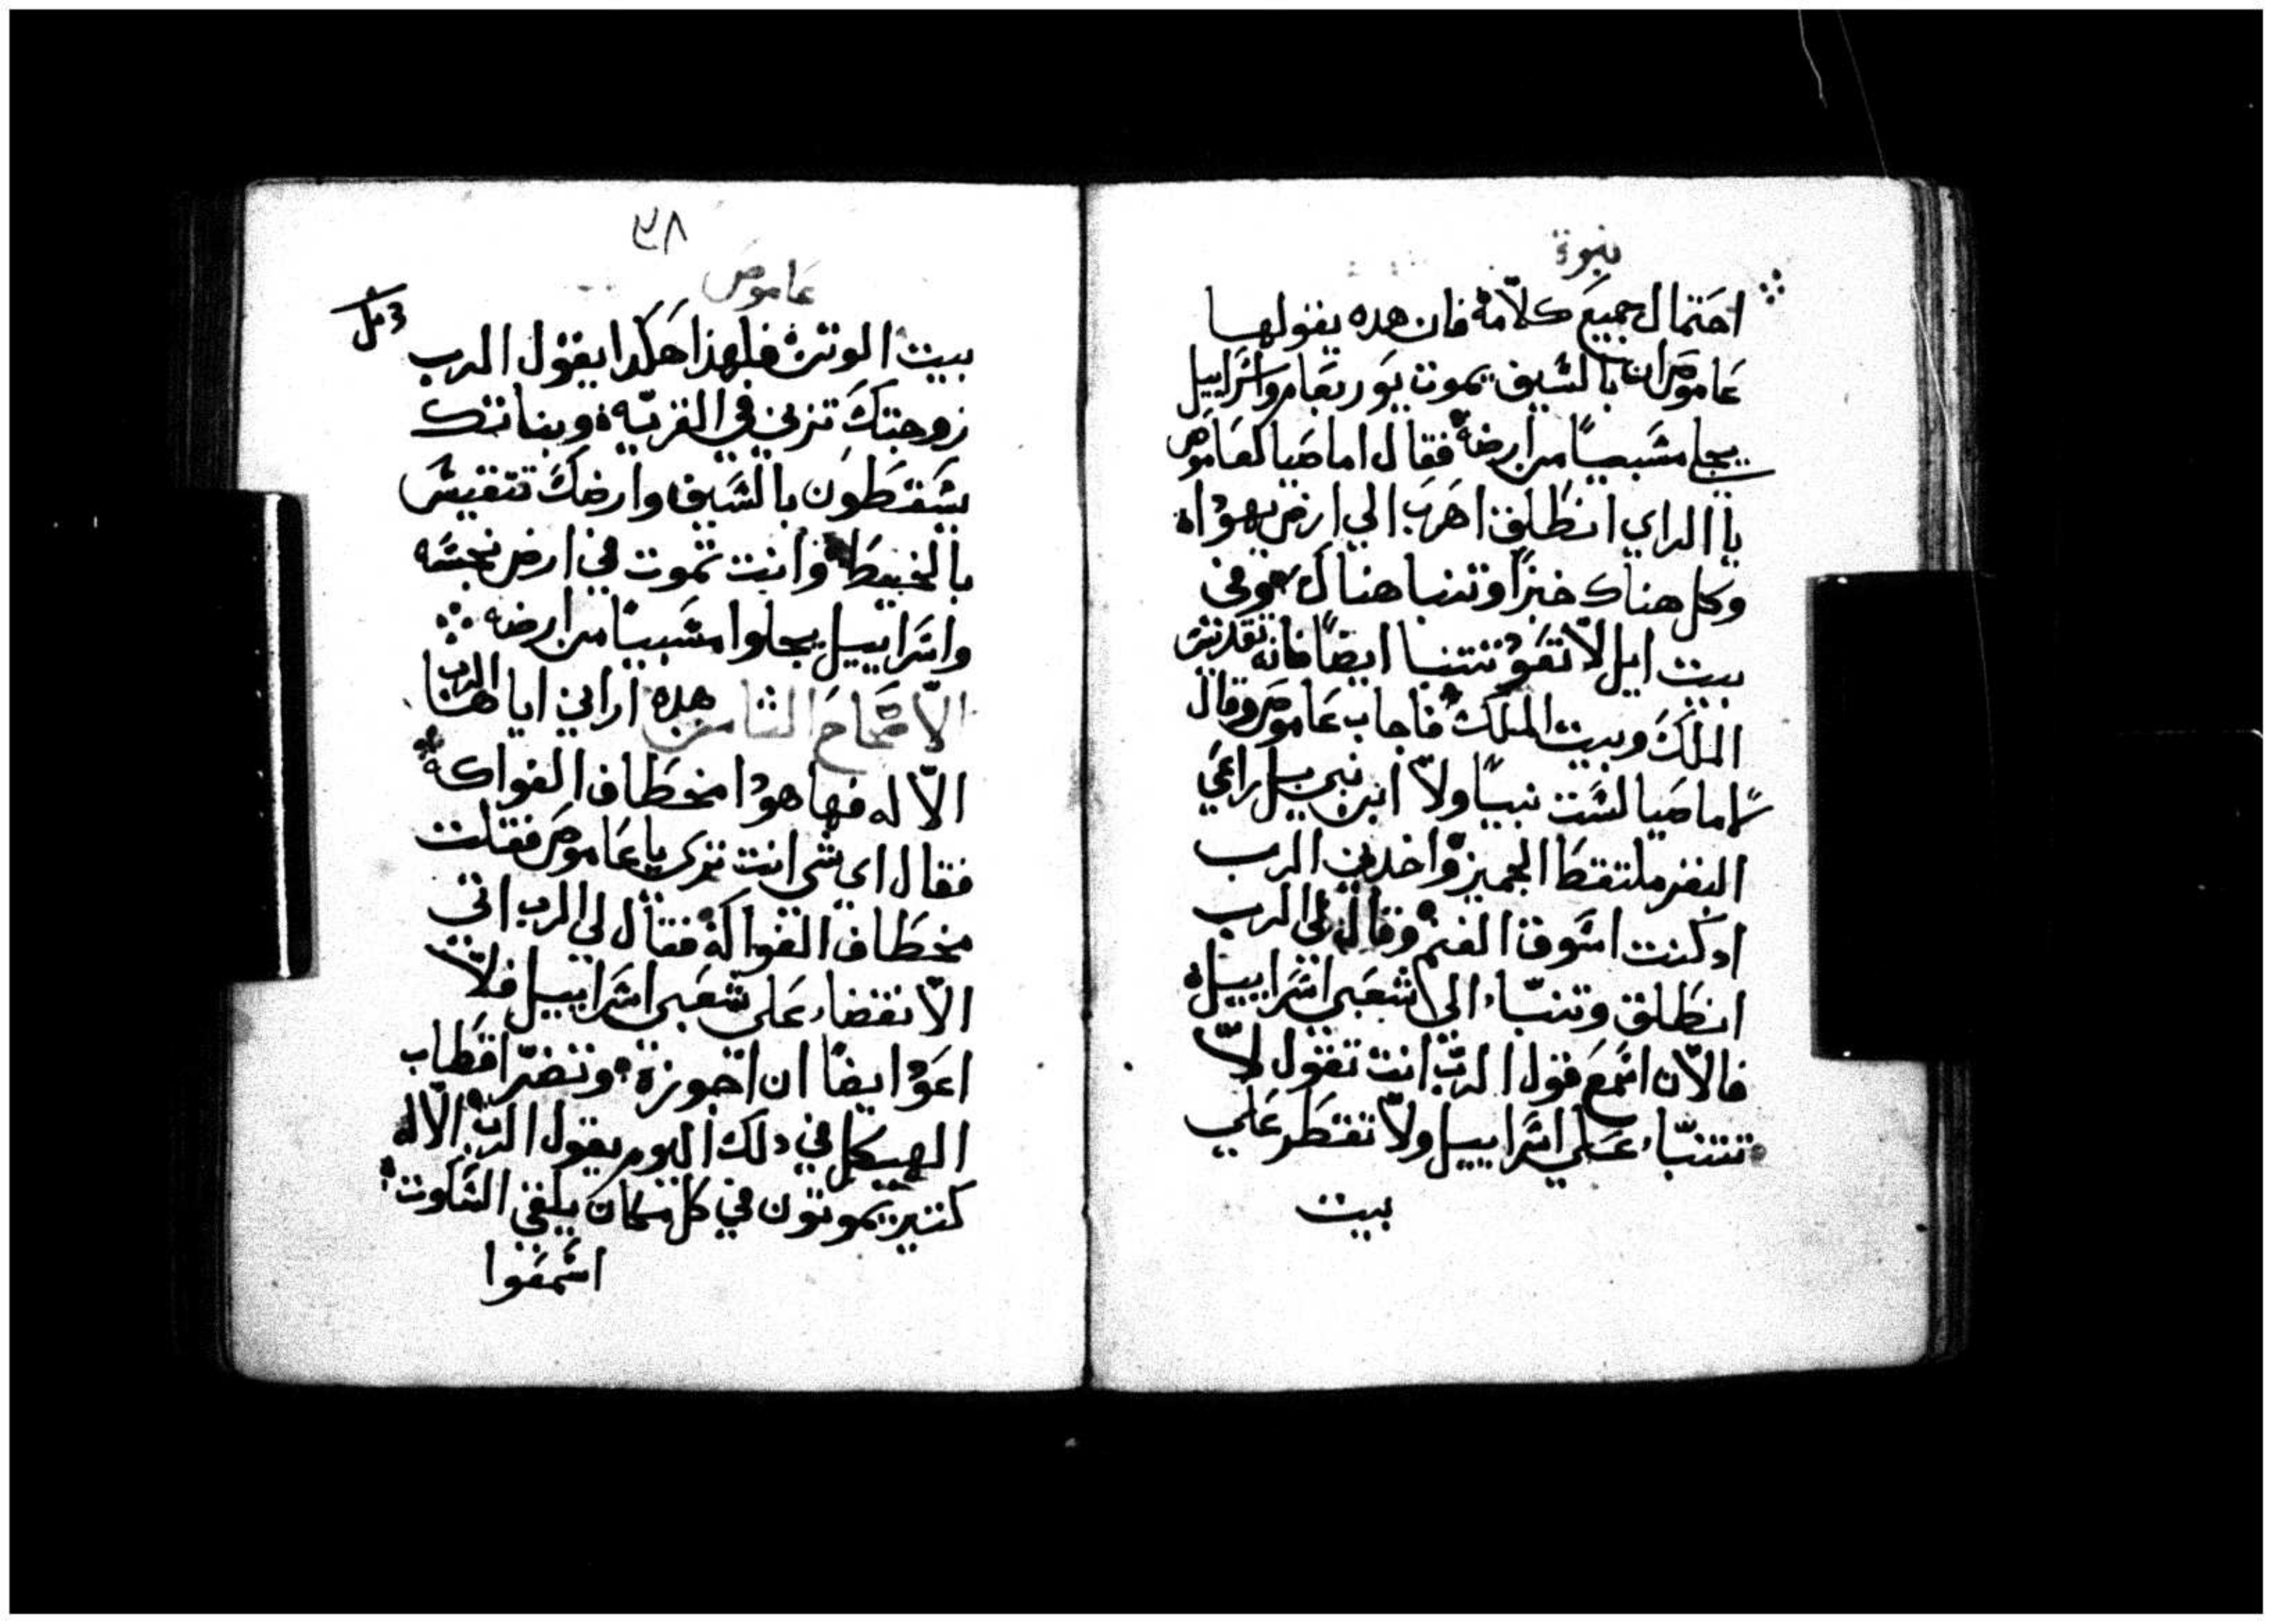 نبوة
احتمال جميع كلامه فان هده يقولها
عاموص ان بالسيف يموت يوربعام واسراييل
يجلي مسبيًا من ارضه فقال اماصيا لعاموص
يا الراي انطلق اهرب الي ارض يهودا
وكل هناك خبزًا وتنبا هناك وفي
بيت ايل لا تعود تتنبا ايضًا فانه تقديس
الملك وبيت الملك فاجاب عاموص وقال
لاماصيا لست نبيًا ولا ابن نبي بل راعي
البقر ملتقط الجميز واخدني الرب
اد كنت اسوق الغنم وقال لي الرب
انطلق وتنبّاء الي شعبي اسراييل
فالان اسمع قول الرب انت تقول لا
تتنبّاء علي اسراييل ولا تقطر علي
بيت
٣٨
عاموص
بيت الوتن فلهذا هكدا يقول الرب
زوجتك تزني في القريه وبناتك
يسقطون بالسيف وارضك تتقيس
بالخيط وانت تموت في ارض نجسه
واسراييل يجلوا مسبيًا من ارضه
الاصحاح الثامن هده اراني اياها الرب
الاله فها هودا مخطاف الفواكه
فقال اي شي انت تري يا عاموص فقلت
مخطاف الفواكه فقال لي الرب اتي
الانقضاء علي شعبي اسراييل فلا
اعود ايضًا ان اجوزه وتضر اقطاب
الهيكل في دلك اليوم يقول الرب الاله
كتير يموتون في كل مكان يلقي السكوت
اسمعوا